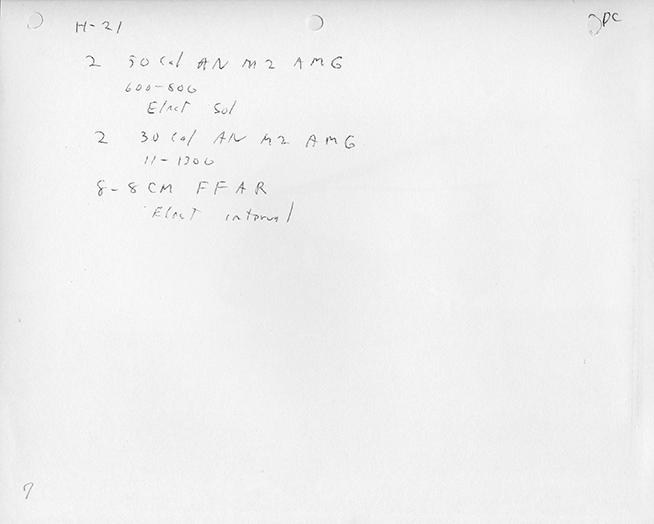 H-21
DC
2 50 Cal AN M2 AMG
600-800
Elect Sol
2 30 Cal AN M2 AMG
11-1300
8-8CM FFAR
Elect interval
7